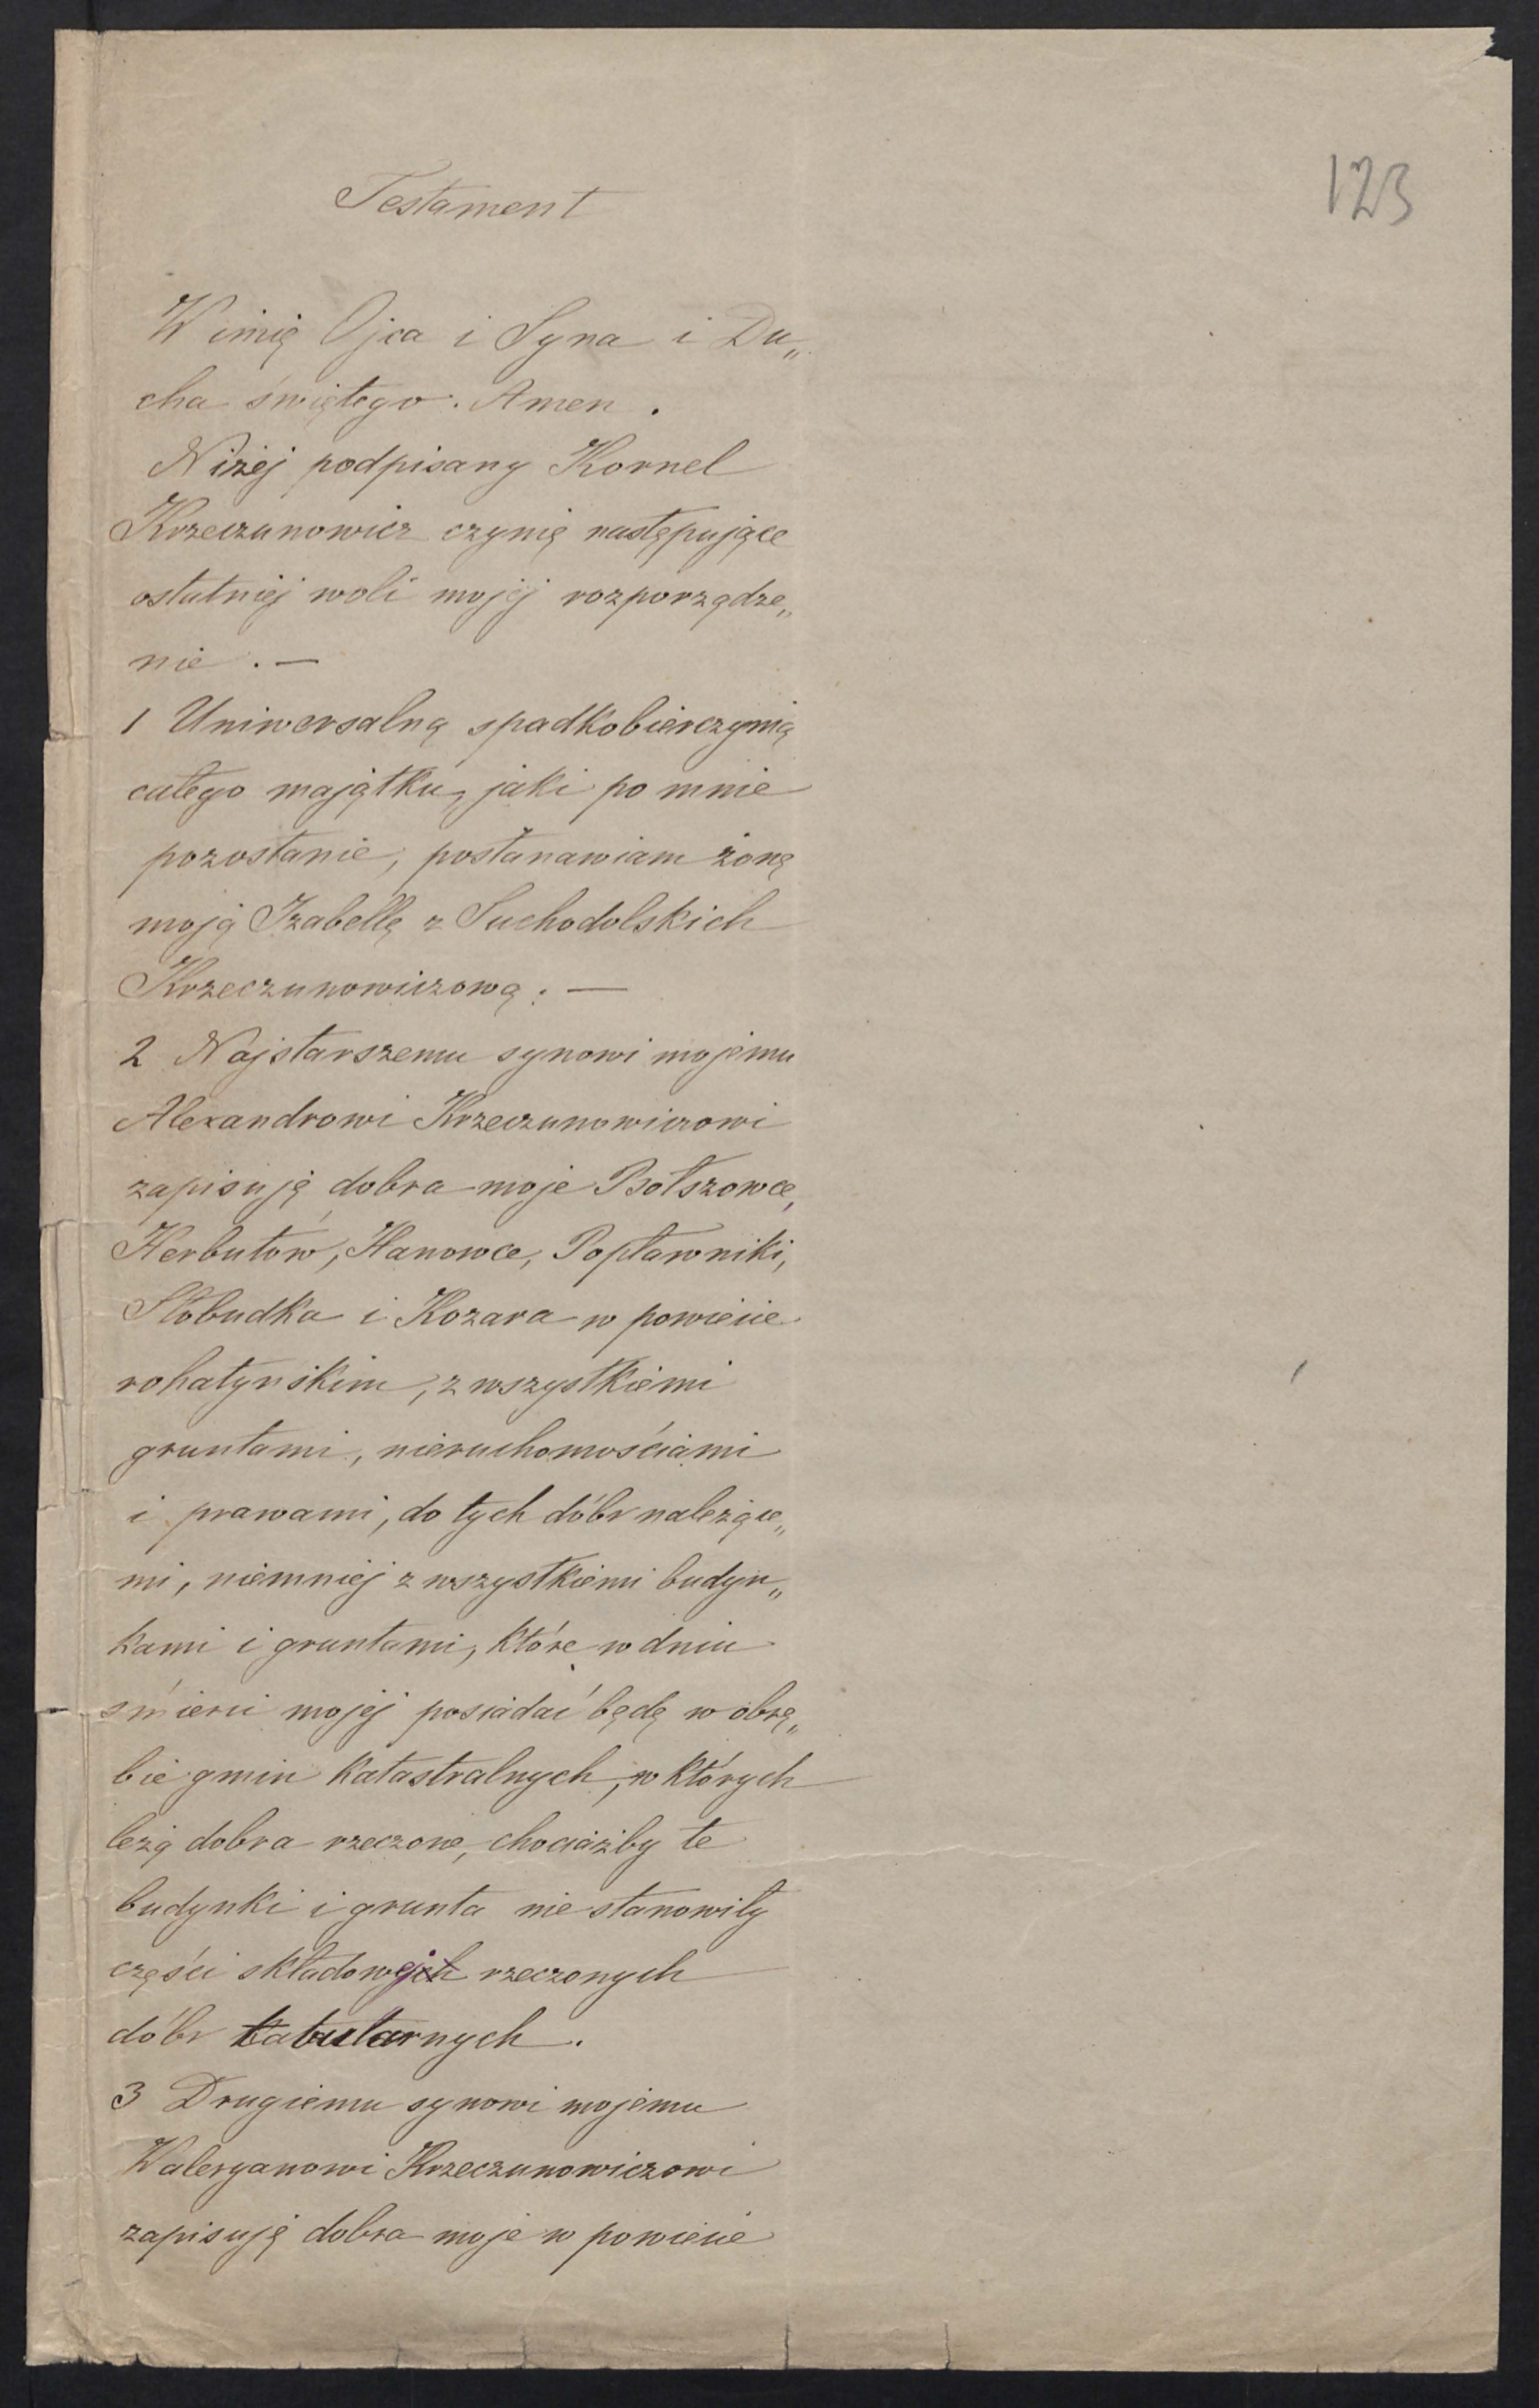 123
Testament
W imię Ojca i Syna i Du„
cha świętego. Amen.
Niżej podpisany Kornel
Krzeczunowicz czynię następujące
ostatniej woli mojej rozporządze„
nie. —
1 Uniwersalną spadkobierczynią
całego majątku, jaki po mnie
pozostanie, postanawiam żonę
moją Izabellę z Suchodolskich
Krzeczunowiczową. —
2 Najstarszemu synowi mojemu
Alexandrowi Krzeczunowiczowi
zapisuję dobra moje Bołszowce,
Herbutów, Hanowce, Popławniki,
Słobudka i Kozara w powiecie
rohatyńskim, z wszystkiemi
gruntami, nieruchomościami
i prawami, do tych dóbr należące„
mi, niemniej z wszystkiemi budyn„
kami i gruntami, które w dniu
śmierci mojej posiadać będę w obrę„
bie gmin katastralnych, w których
leżą dobra rzeczone, chociażby te
budynki i grunta nie stanowiły
części składowejch rzeczonych
dóbr tabularnych.
3 Drugiemu synowi mojemu
Waleryanowi Krzeczunowiczowi
zapisuję dobra moje w powiecie